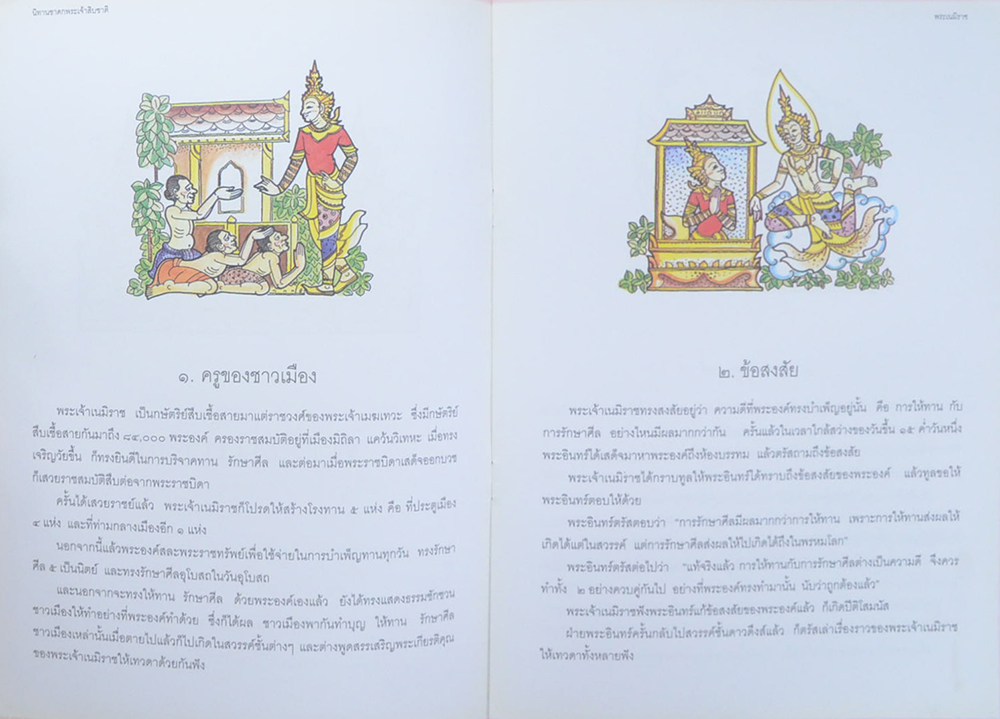 นิทานชาดกพระเจ้าสิบชาติ
๑. ครูของชาวเมือง
พระเจ้าเนมิราช เป็นกษัตริย์สืบเชื้อสายมาแต่ราชวงศ์ของพระเจ้าเมฆเทวะ ซึ่งมีกษัตริย์
สืบเชื้อสายกันมาถึง ๘๔,๐๐๐ พระองค์ ครองราชสมบัติอยู่ที่เมืองมิถิลา แคว้นวิเทหะ เมื่อทรง
เจริญวัยขึ้น ก็ทรงยินดีในการบริจาคทาน รักษาศีล และต่อมาเมื่อพระราชบิดาเสด็จออกบวช
ก็เสวยราชสมบัติสืบต่อจากพระราชบิดา
ครั้นได้เสวยราชย์แล้ว พระเจ้าเนมิราชก็โปรดให้สร้างโรงทาน ๕ แห่ง คือ ที่ประตูเมือง
๔ แห่ง และที่ท่ามกลางเมืองอีก ๑ แห่ง
นอกจากนี้แล้วพระองค์สละพระราชทรัพย์เพื่อใช้จ่ายในการบำเพ็ญทานทุกวัน ทรงรักษา
ศีล ๕ เป็นนิตย์ และทรงรักษาศีลอุโบสถในวันอุโบสถ
และนอกจากจะทรงให้ทาน รักษาศีล ด้วยพระองค์เองแล้ว ยังได้ทรงแสดงธรรมชักชวน
ชาวเมืองให้ทำอย่างที่พระองค์ทำด้วย ซึ่งก็ได้ผล ชาวเมืองพากันทำบุญ ให้ทาน รักษาศีล
ชาวเมืองเหล่านั้นเมื่อตายไปแล้วก็ไปเกิดในสวรรค์ชั้นต่างๆ และต่างพูดสรรเสริญพระเกียรติคุณ
ของพระเจ้าเนมิราชให้เทวดาด้วยกันฟัง
พระเนมิราช
๒. ข้อสงสัย
พระเจ้าเนมิราชทรงสงสัยอยู่ว่า ความดีที่พระองค์ทรงบำเพ็ญอยู่นั้น คือ การให้ทาน กับ
การรักษาศีล อย่างไหนมีผลมากกว่ากัน ครั้นแล้วในเวลาใกล้สว่างของวันขึ้น ๑๕ ค่ำวันหนึ่ง
พระอินทร์ได้เสด็จมาหาพระองค์ถึงห้องบรรทม แล้วตรัสถามถึงข้อสงสัย
พระเจ้าเนมิราชได้กราบทูลให้พระอินทร์ได้ทราบถึงข้อสงสัยของพระองค์ แล้วทูลขอให้
พระอินทร์ตอบให้ด้วย
พระอินทร์ตรัสตอบว่า "การรักษาศีลมีผลมากกว่าการให้ทาน เพราะการให้ทานส่งผลให้
เกิดได้แต่ในสวรรค์ แต่การรักษาศีลส่งผลให้ไปเกิดได้ถึงในพรหมโลก"
พระอินทร์ตรัสต่อไปว่า "แท้จริงแล้ว การให้ทานกับการรักษาศีลต่างเป็นความดี จึงควร
ทำทั้ง ๒ อย่างควบคู่กันไป อย่างที่พระองค์ทรงทำมานั้น นับว่าถูกต้องแล้ว"
พระเจ้าเนมิราชฟังพระอินทร์แก้ข้อสงสัยของพระองค์แล้ว ก็เกิดปีติโสมนัส
ฝ่ายพระอินทร์ครั้นกลับไปสวรรค์ชั้นดาวดึงส์แล้ว ก็ตรัสเล่าเรื่องราวของพระเจ้าเนมิราช
ให้เทวดาทั้งหลายฟัง